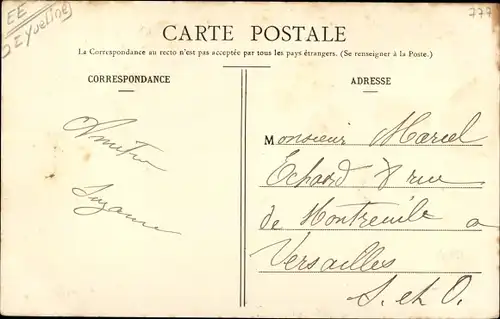 EE
Yvelines
777
CARTE POSTALE
La Correspondance au recto n'est pas acceptée par tous les pays étrangers. (Se renseigner à la Poste.)
CORRESPONDANCE
ADRESSE
Suzanne
Monsieur Marcel
Echard 8 rue
de Montreuil a
Versailles
S. et O.